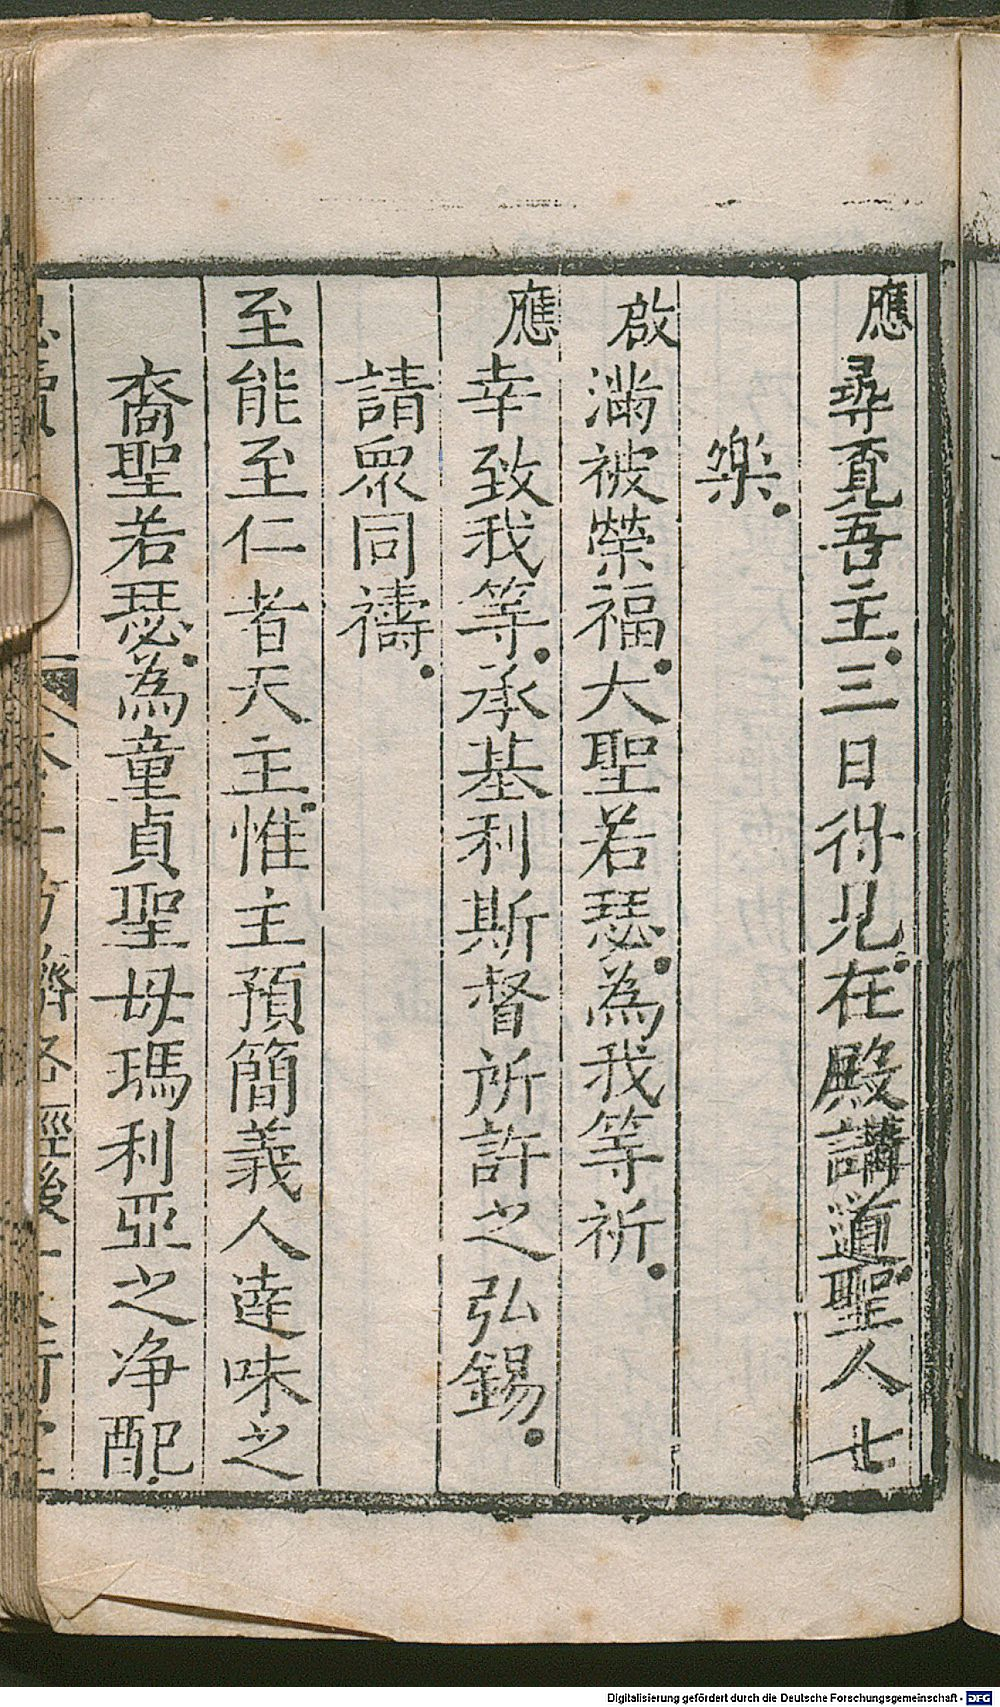 應 尋覔吾主.三日得见.在殿講道.聖人七
樂.
啟 滿被榮福.大聖若瑟.為我等祈.
應 幸致我等.承基利斯督所許之弘錫.
請衆同禱.
至能至仁者天主.惟主預簡義人達味之
裔聖若瑟.為童貞聖母瑪利亞之净配.
Digitalisierung gefördert durch die Deutsche Forschungsgemeinschaft - DFG